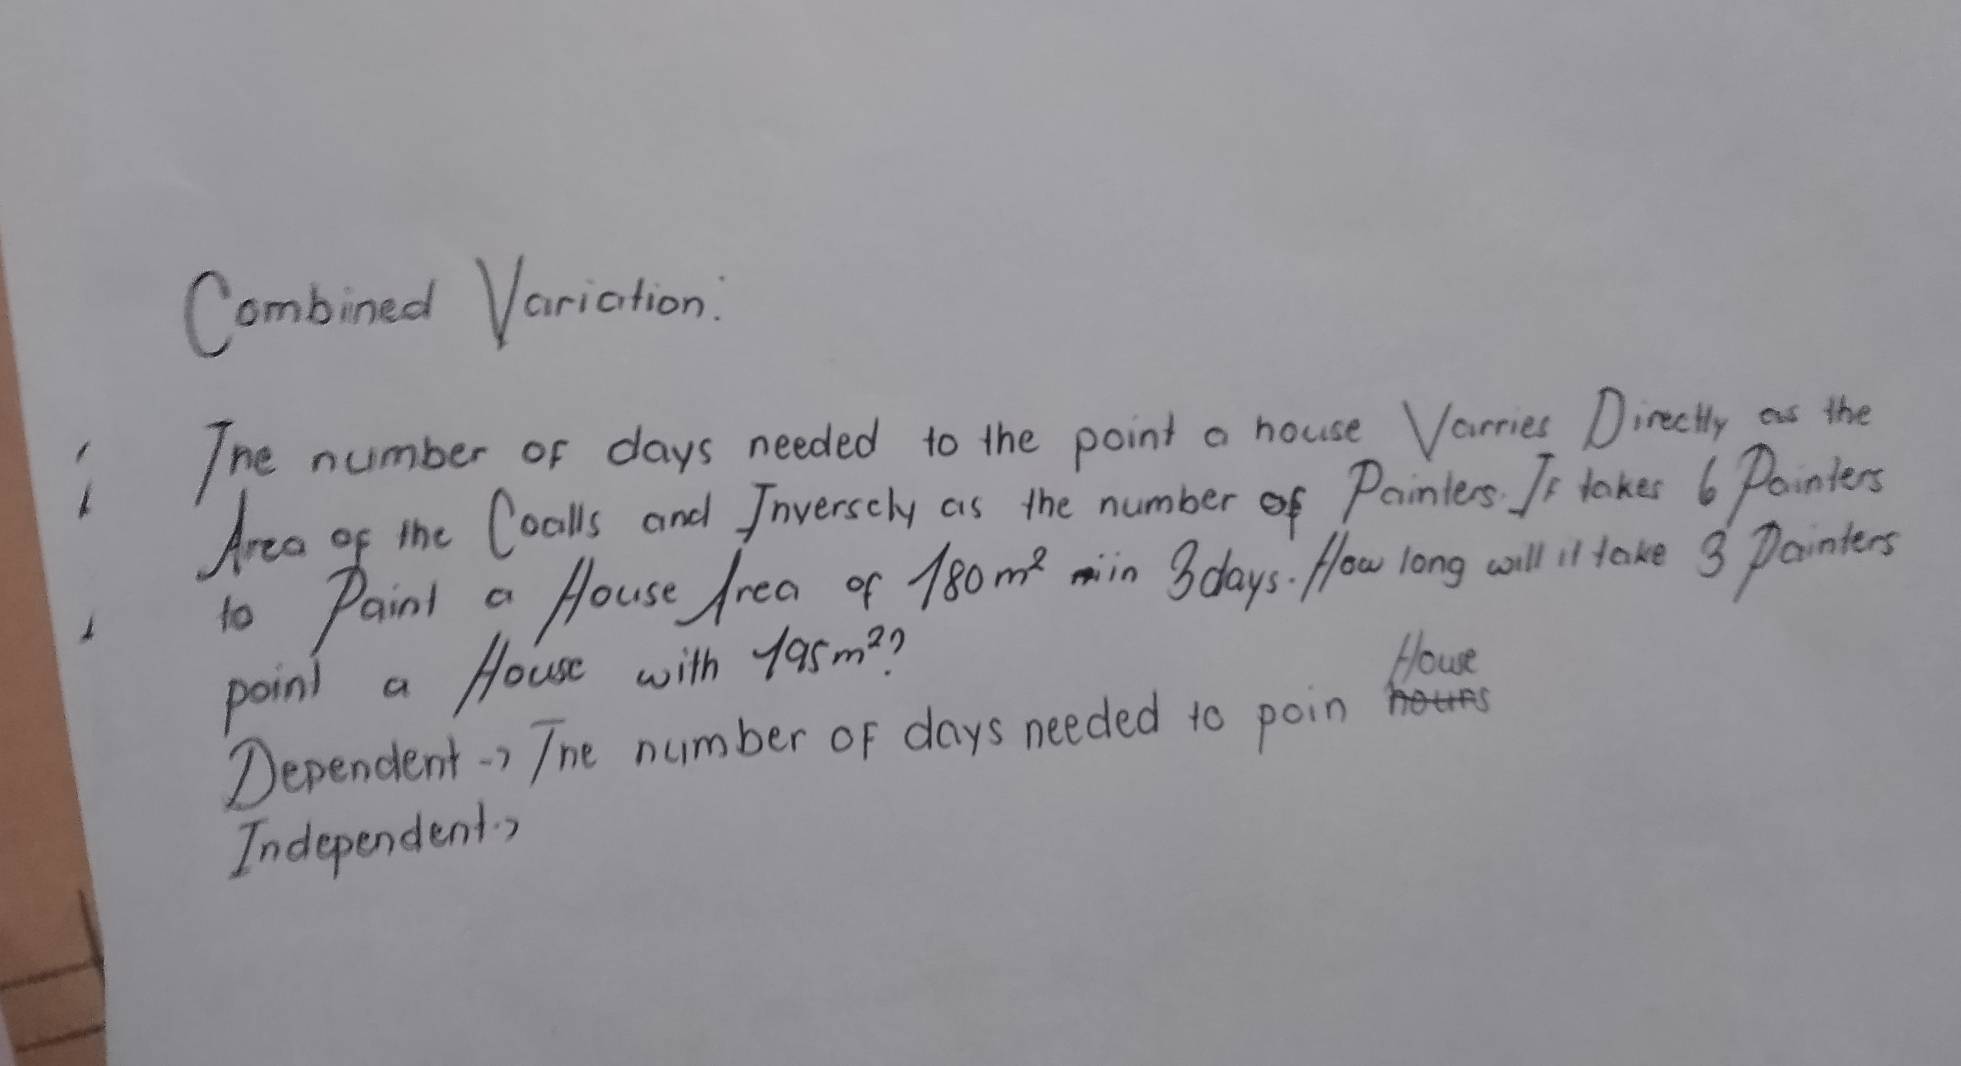 Combined Variation:
The number of days needed to the point a house Varries Directly as the
Area of the Coalls and Inversely as the number of Painters. If takes 6 Painters
to Paint a House Area of 180m² in 3days. How long will it take 3 Painters
point a House with 195m²?
Dependent -> The number of days needed to poin House hours
Independent ->